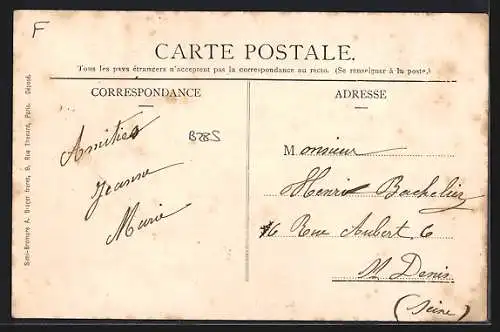 F
CARTE POSTALE.
Tous les pays étrangers n'acceptent pas la correspondance au recto. (Se renseigner à la poste.)
CORRESPONDANCE
Amitiés
Jeanne
Marie
B285
ADRESSE
Monsieur
Henri Bachelin
6 Rue Aubert 6
St Denis
(Seine)
A. Breger frères, 9, Rue Thénard, Paris. Déposé.